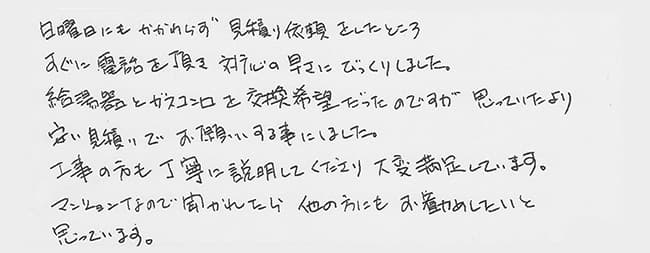 日曜日にもかかわらず 見積り依頼をしたところ
すぐに電話を頂き 対応の早さにびっくりしました。
給湯器とガスコンロを交換希望だったのですが 思っていたより
安い見積りでお願いする事にしました。
工事の方も丁寧に説明してくださり 大変満足しています。
マンションなので聞かれたら 他の方にもお勧めしたいと
思っています。